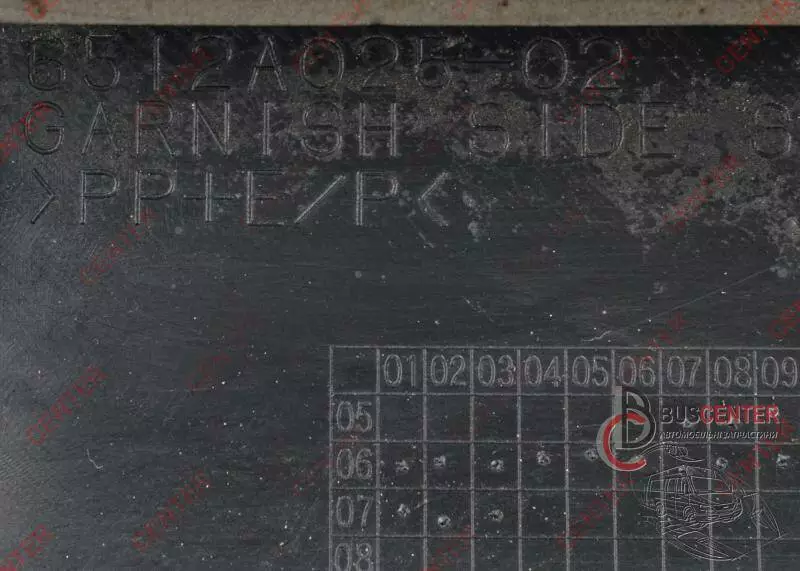 6512A026-02
GARNISH SIDE S
>PP+E/P<
01 02 03 04 05 06 07 08 09
05
06
07
08
BUSCENTER
АВТОМОБІЛЬНІ ЗАПЧАСТИНИ
CENTER